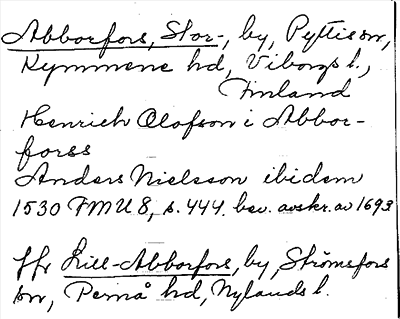 Abborfors, Stor-, by, Pyttis sn,
Kymmene hd, Viborgs l.,
Finland
Henrich Olofson i Abbor-
forss
Anders Nielsson ibidem
1530 FMU 8, s. 444. bev. avskr. av 1693
jfr Lill-Abborfors, by, Strömsfors
sn, Pernå hd, Nylands l.